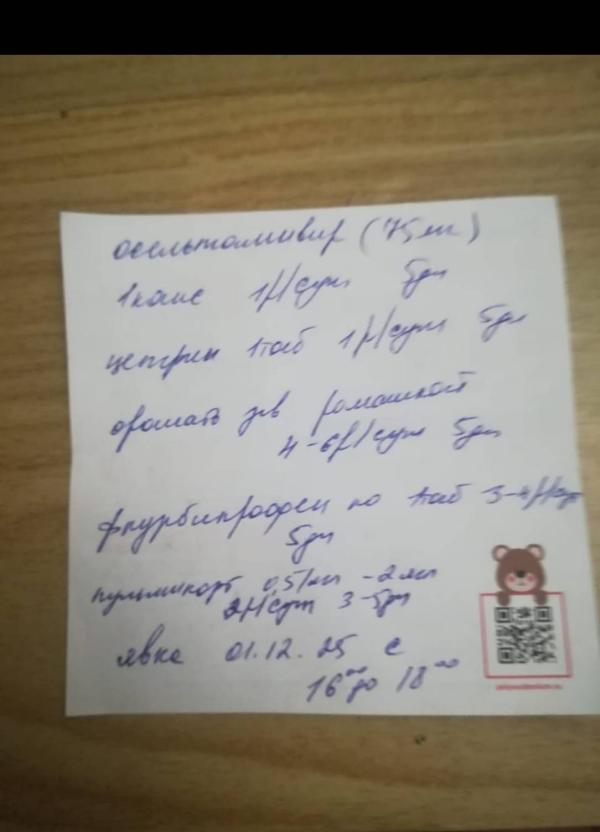 осельтамивир (75 мг)
1 капс 1 р/сут 5 дн
цетрин 1 таб 1 р/сут 5 дн
орошать зев ромашкой
4-6 р/сут 5 дн
флурбипрофен по 1 таб 3-4 р/сут
5 дн
пульмикорт 0,5/мл - 2 мл
2 р/сут 3-5 дн
явка 01.12.25 с
16⁰⁰ до 18⁰⁰